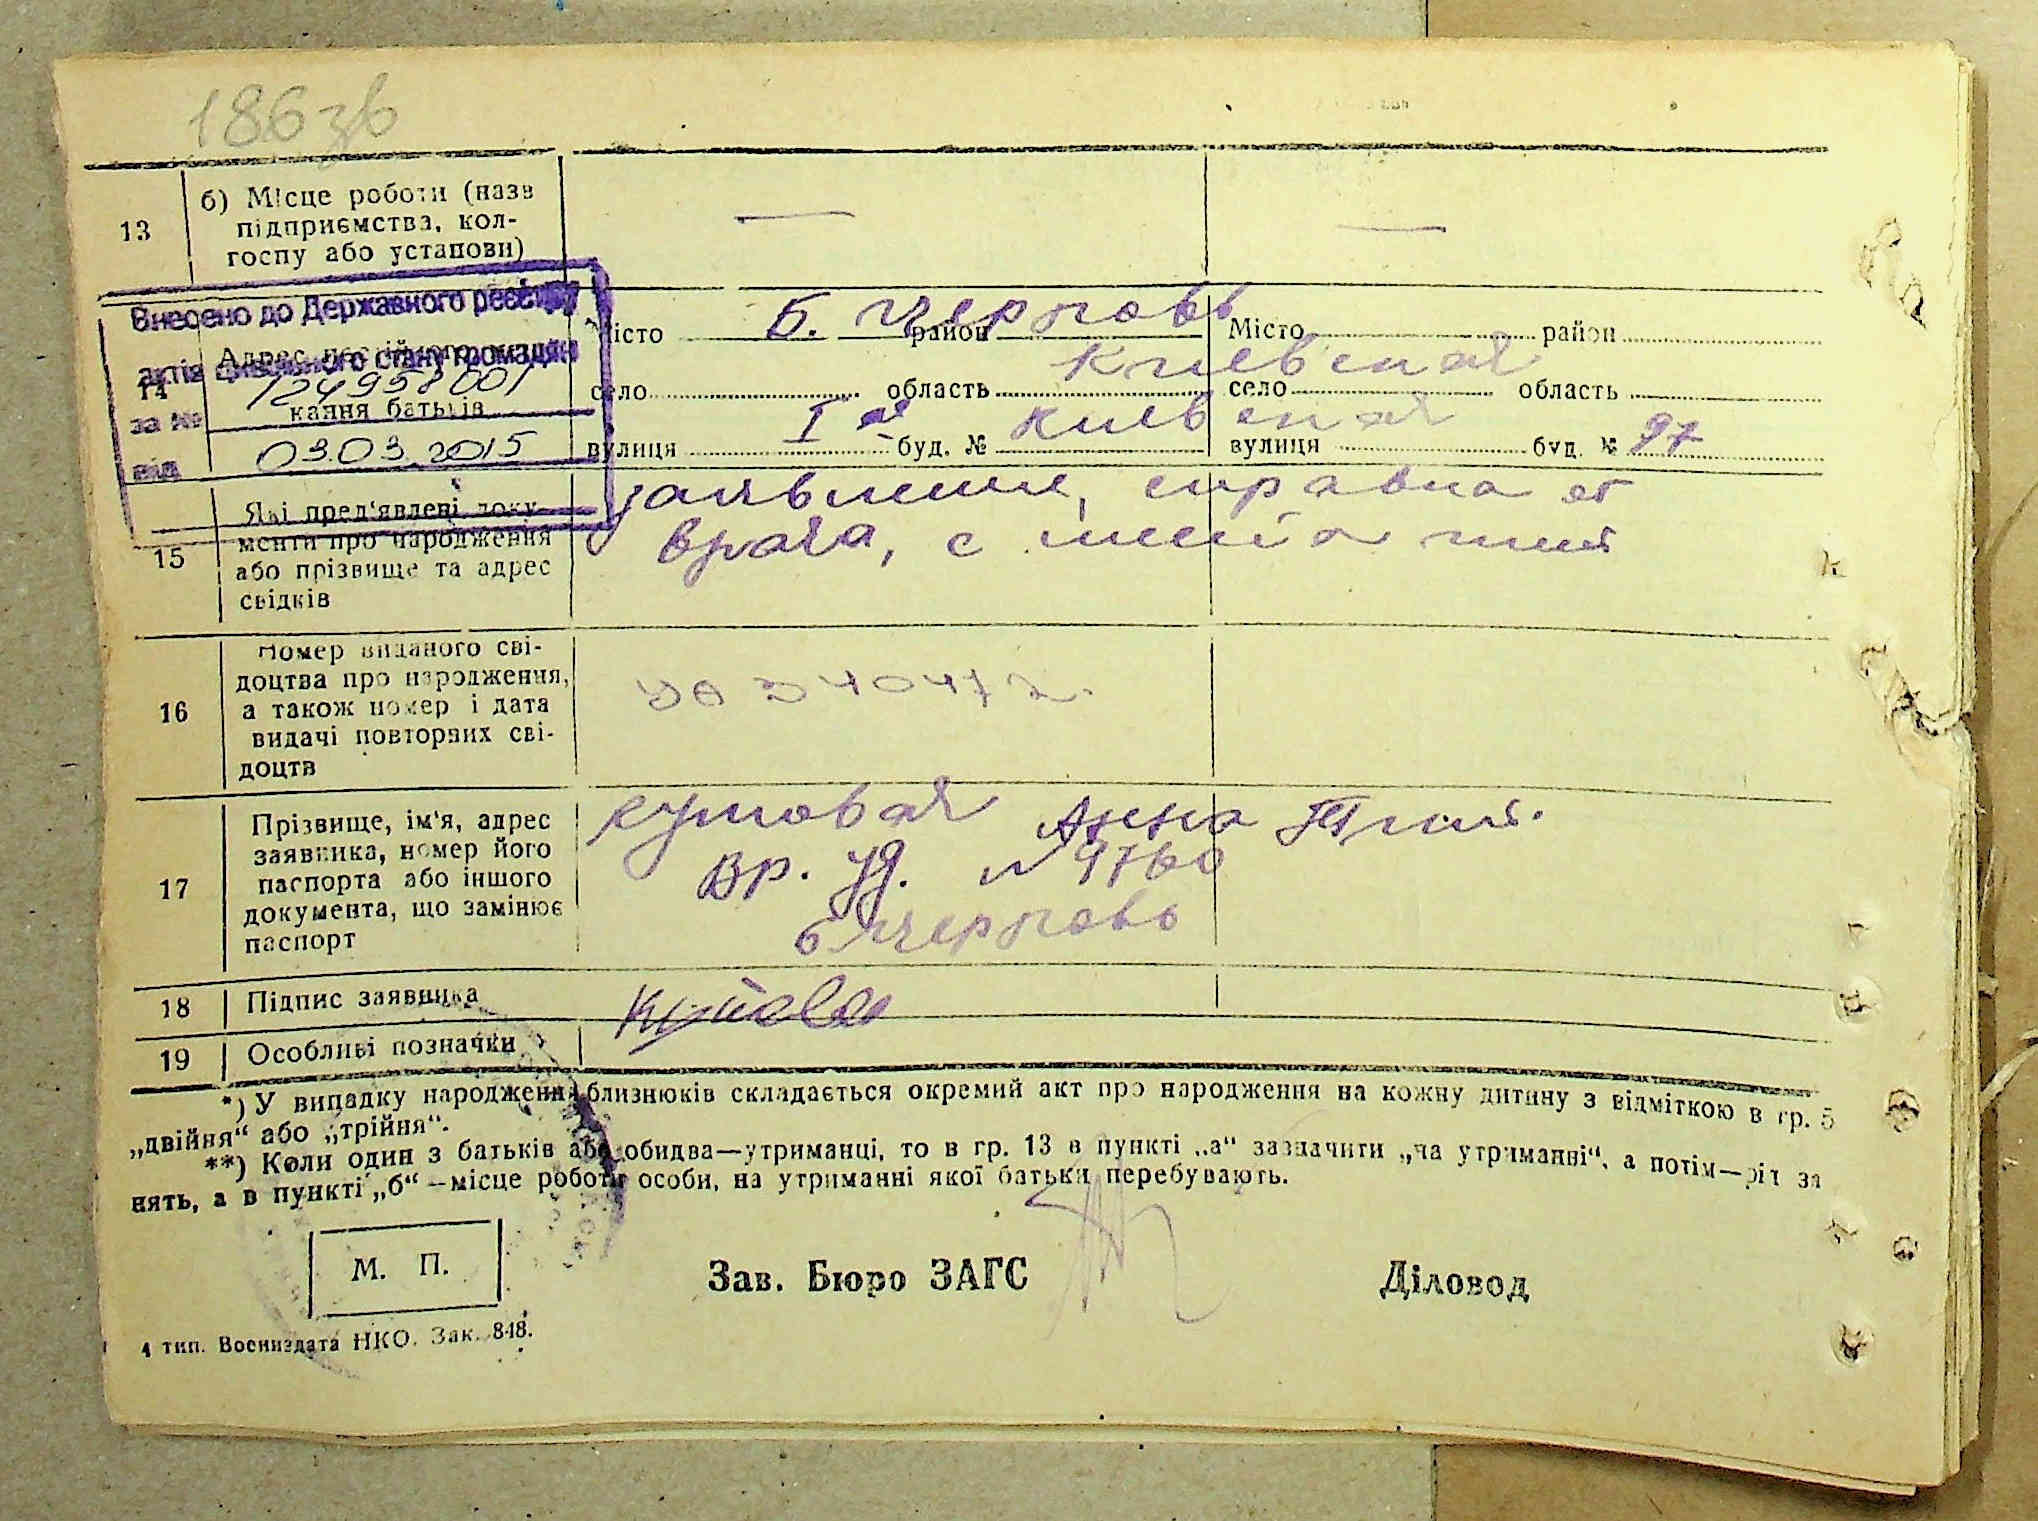 186 зв
13
б) Місце роботи (назв
підприємства, кол-
госпу або установи)
—
—
Внесено до Державного реєстру
актів цивільного стану громадян
за № 124958001
від 03.03.2015
14
Адрес постійного
кання батьків
Місто район
Б. Черновь
Місто район
село область
Киевская
село область
вулиця I ая буд. №
Киевская
вулиця буд. № 97
15
Які пред'явлені доку-
менти про народження
або прізвище та адрес
свідків
заявление, справка от
врача, с
16
Номер виданого сві-
доцтва про народження,
а також номер і дата
видачі повторних сві-
доцтв
340472
17
Прізвище, ім'я, адрес
заявника, номер його
паспорта або іншого
документа, що замінює
паспорт
Кутовая Анна
Вр. уд. № 9760
18
Підпис заявника
19
Особливі позначки
*) У випадку народження близнюків складається окремий акт про народження на кожну дитину з відміткою в гр. 5
„двійня“ або „трійня“.
**) Коли один з батьків або обидва—утриманці, то в гр. 13 в пункті „а“ зазначити „на утриманні“, а потім—рід за
нять, а в пункті „б“ —місце роботи особи, на утриманні якої батьки перебувають.
М. П.
Зав. Бюро ЗАГС
Діловод
1 тип. Воениздата НКО. Зак. 848.